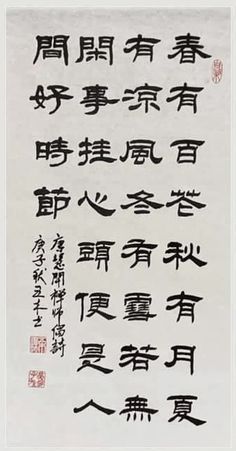 春有百花秋有月夏
有涼風冬有雪若無
閑事挂心頭便是人
間好時節
唐慧開禪師偈詩
庚子秋